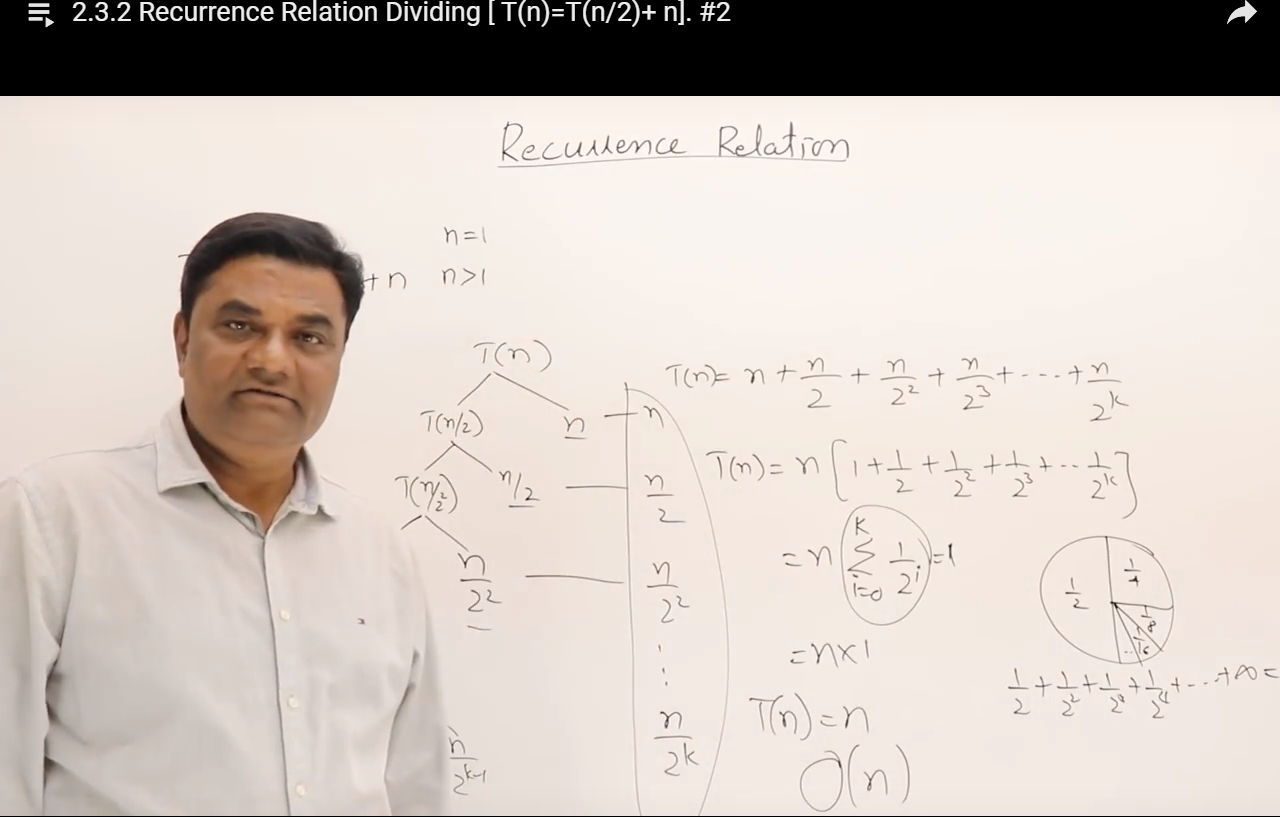 2.3.2 Recurrence Relation Dividing [ T(n)=T(n/2)+ n]. #2
Recurrence Relation
n=1
+n n>1
T(n)
T(n/2) n — n
T(n/2²) n/2 — n/2
n/2² — n/2²
⋮
n/2^k
n/2^k-1
T(n)= n + n/2 + n/2² + n/2³ + --- + n/2^k
T(n)= n [1 + 1/2 + 1/2² + 1/2³ + -- 1/2^k]
= n Σ i=0 k 1/2^i =1
= n×1
T(n)=n
O(n)
1/2 1/4 1/8 1/16 ...